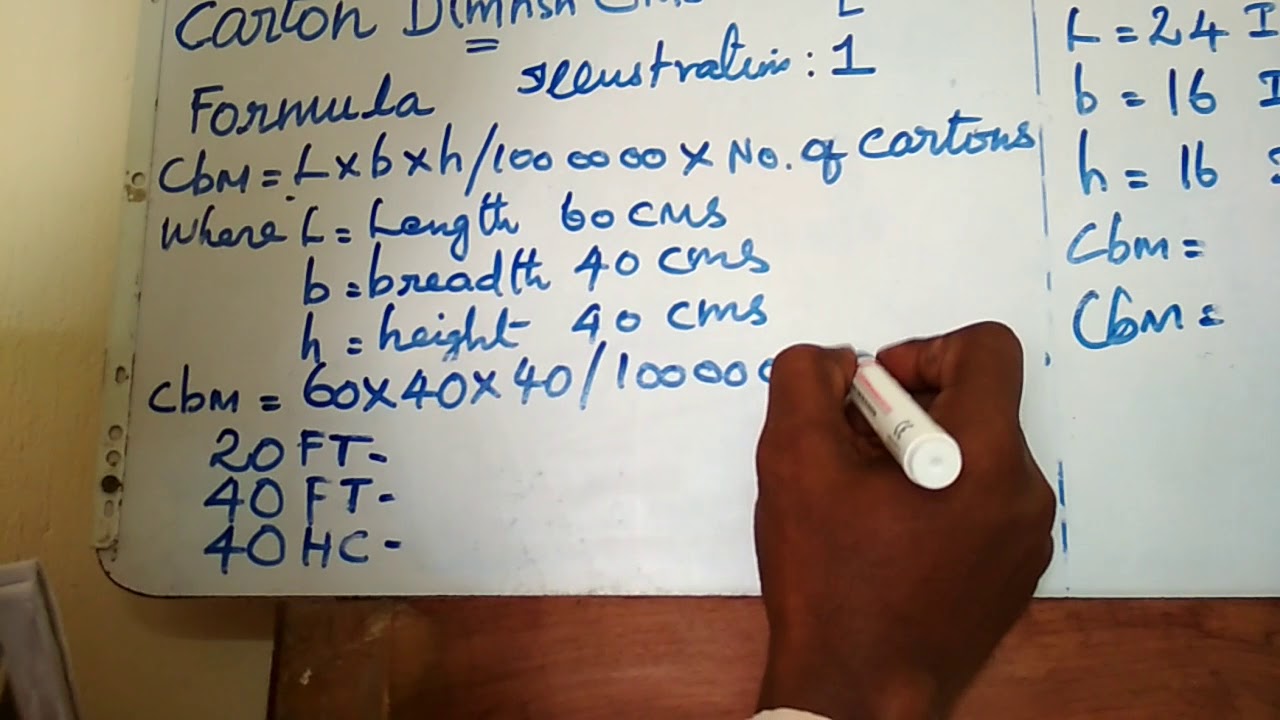 Carton
Illustration: 1
Formula
CBM = L x b x h / 1000000 x No. of cartons
Where L = Length 60 cms
b = breadth 40 cms
h = height 40 cms
CBM = 60 x 40 x 40 / 100000
20 FT-
40 FT-
40 HC-
L = 24 I
b = 16 I
h = 16
CBM =
CBM =